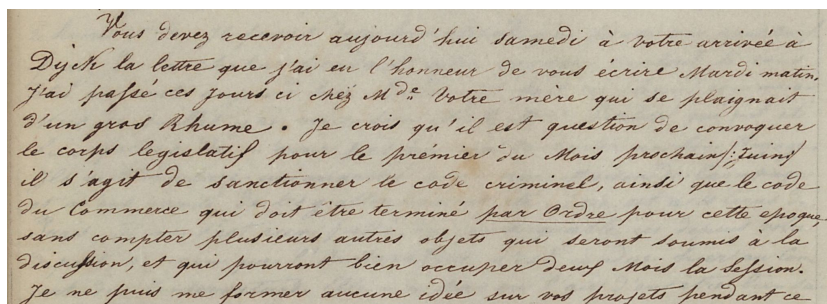 Vous devez recevoir aujourd'hui samedi à votre arrivée à
Dijck la lettre que j'ai eu l'honneur de vous écrire Mardi matin.
J'ai passé ces jours ci chéz Mde. votre mère qui se plaignait
d'un gros Rhume. Je crois qu'il est question de convoquer
le corps legislatif pour le prémier du Mois prochain /: Juin :/
il s'agit de sanctionner le code criminel, ainsi que le code
du Commerce qui doit être terminé par Ordre pour cette epoque,
sans compter plusieurs autres objets qui seront soumis à la
discussion, et qui pourront bien occuper deux Mois la Session.
Je ne puis me former aucune idée sur vos projets pendant ce